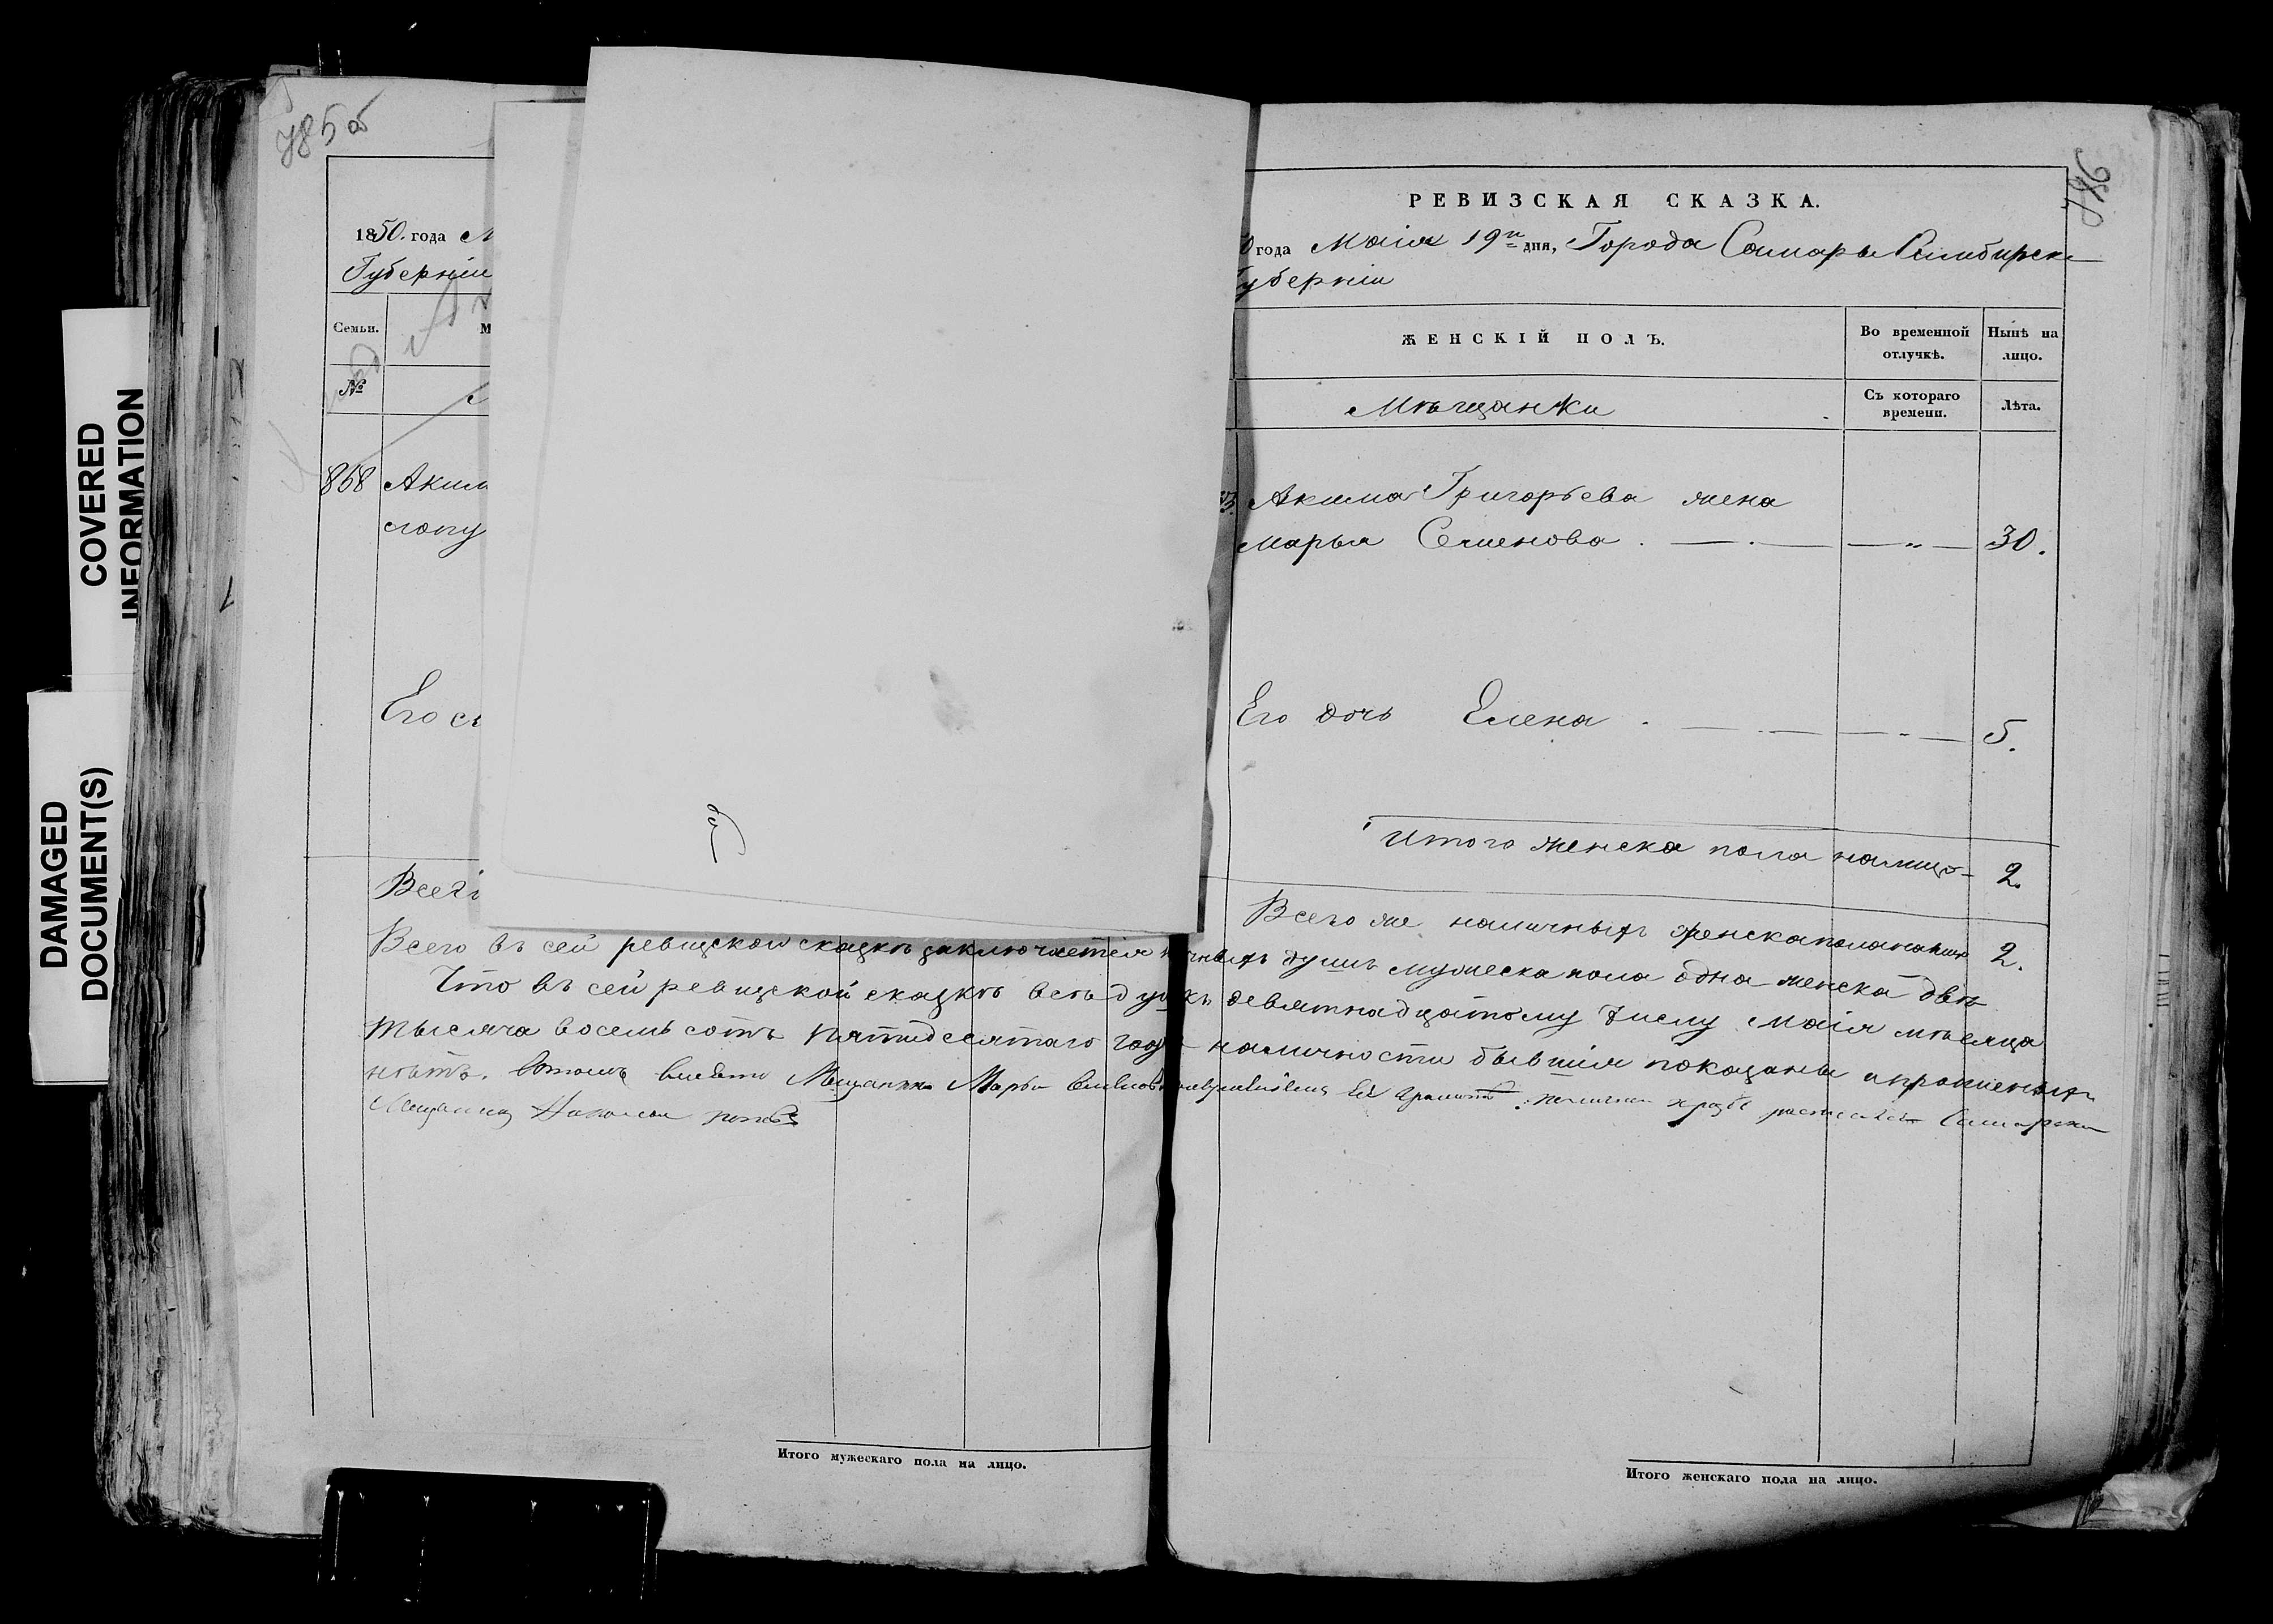 COVERED
INFORMATION
DAMAGED
DOCUMENT(S)
785об
1850. года М
Губерніи
Семьи.
М
№
868 Аким
Его сы
Всего
786
РЕВИЗСКАЯ СКАЗКА.
0 года Маія 19го дня, Города Самары Симбирск
Губерніи
ЖЕНСКІЙ ПОЛЪ.
Во временной отлучкѣ.
Нынѣ на лицо.
Мѣщанки
Съ котораго времени.
Лѣта.
Акима Григорьева жена
Марья Семенова . — . — — „ — 30.
Его дочь Елена . — . — — „ — 5.
Итого женска пола налицо 2.
Всего же наличныхъ женска пола налицо 2.
Всего въ сей ревизской сказкѣ заключается наличныхъ душъ мужеска пола одна женска двѣ
Что въ сей ревизской сказкѣ всѣ душъ къ девятнадцатому числу Маія мѣсяца
тысяча восемь сотъ пятидесятаго года наличности бывшія показаны и прописныхъ
нѣтъ. Вотомъ вмѣсто Мещанина Марьи
Итого мужескаго пола на лицо.
Итого женскаго пола на лицо.